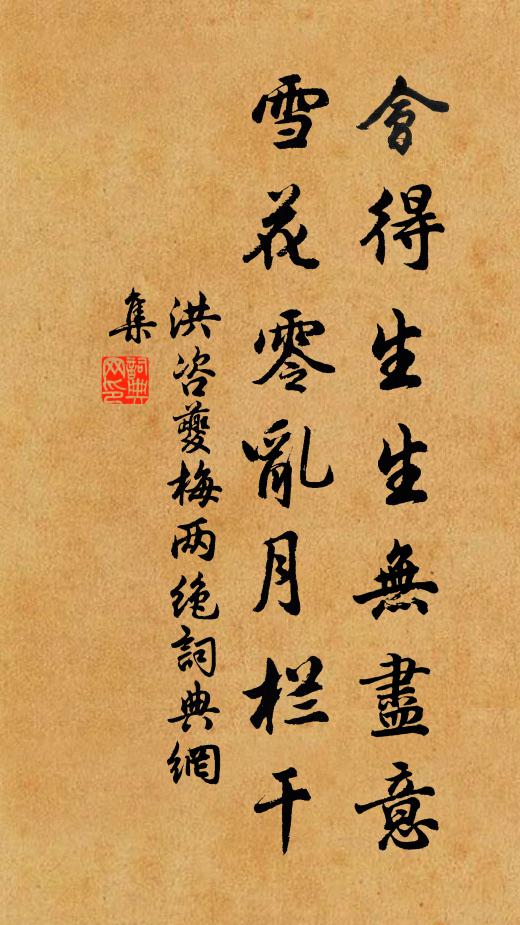 會得生生無盡意
雪花零亂月栏干
洪咨夔梅两绝詞典網
集
詞典
网印